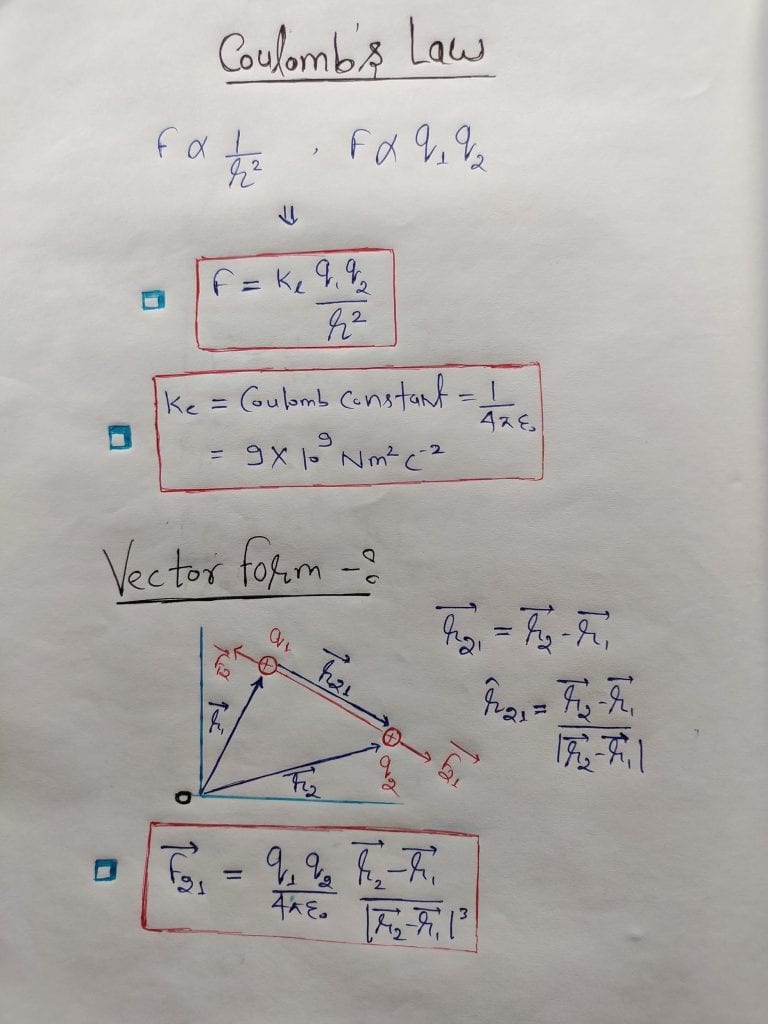 Coulomb's Law
F ∝ 1/r² , F ∝ q₁ q₂
⇓
F = Ke q₁q₂/r²
Ke = Coulomb constant = 1/4πε₀
= 9 × 10⁹ Nm² C⁻²
Vector form -:
q₁
F⃗₁₂
r⃗₂₁
r⃗₁
r⃗₂
q₂
F⃗₂₁
O
r⃗₂₁ = r⃗₂ - r⃗₁
r̂₂₁ = r⃗₂ - r⃗₁/|r⃗₂ - r⃗₁|
F⃗₂₁ = q₁ q₂/4πε₀ r⃗₂ - r⃗₁/|r⃗₂ - r⃗₁|³